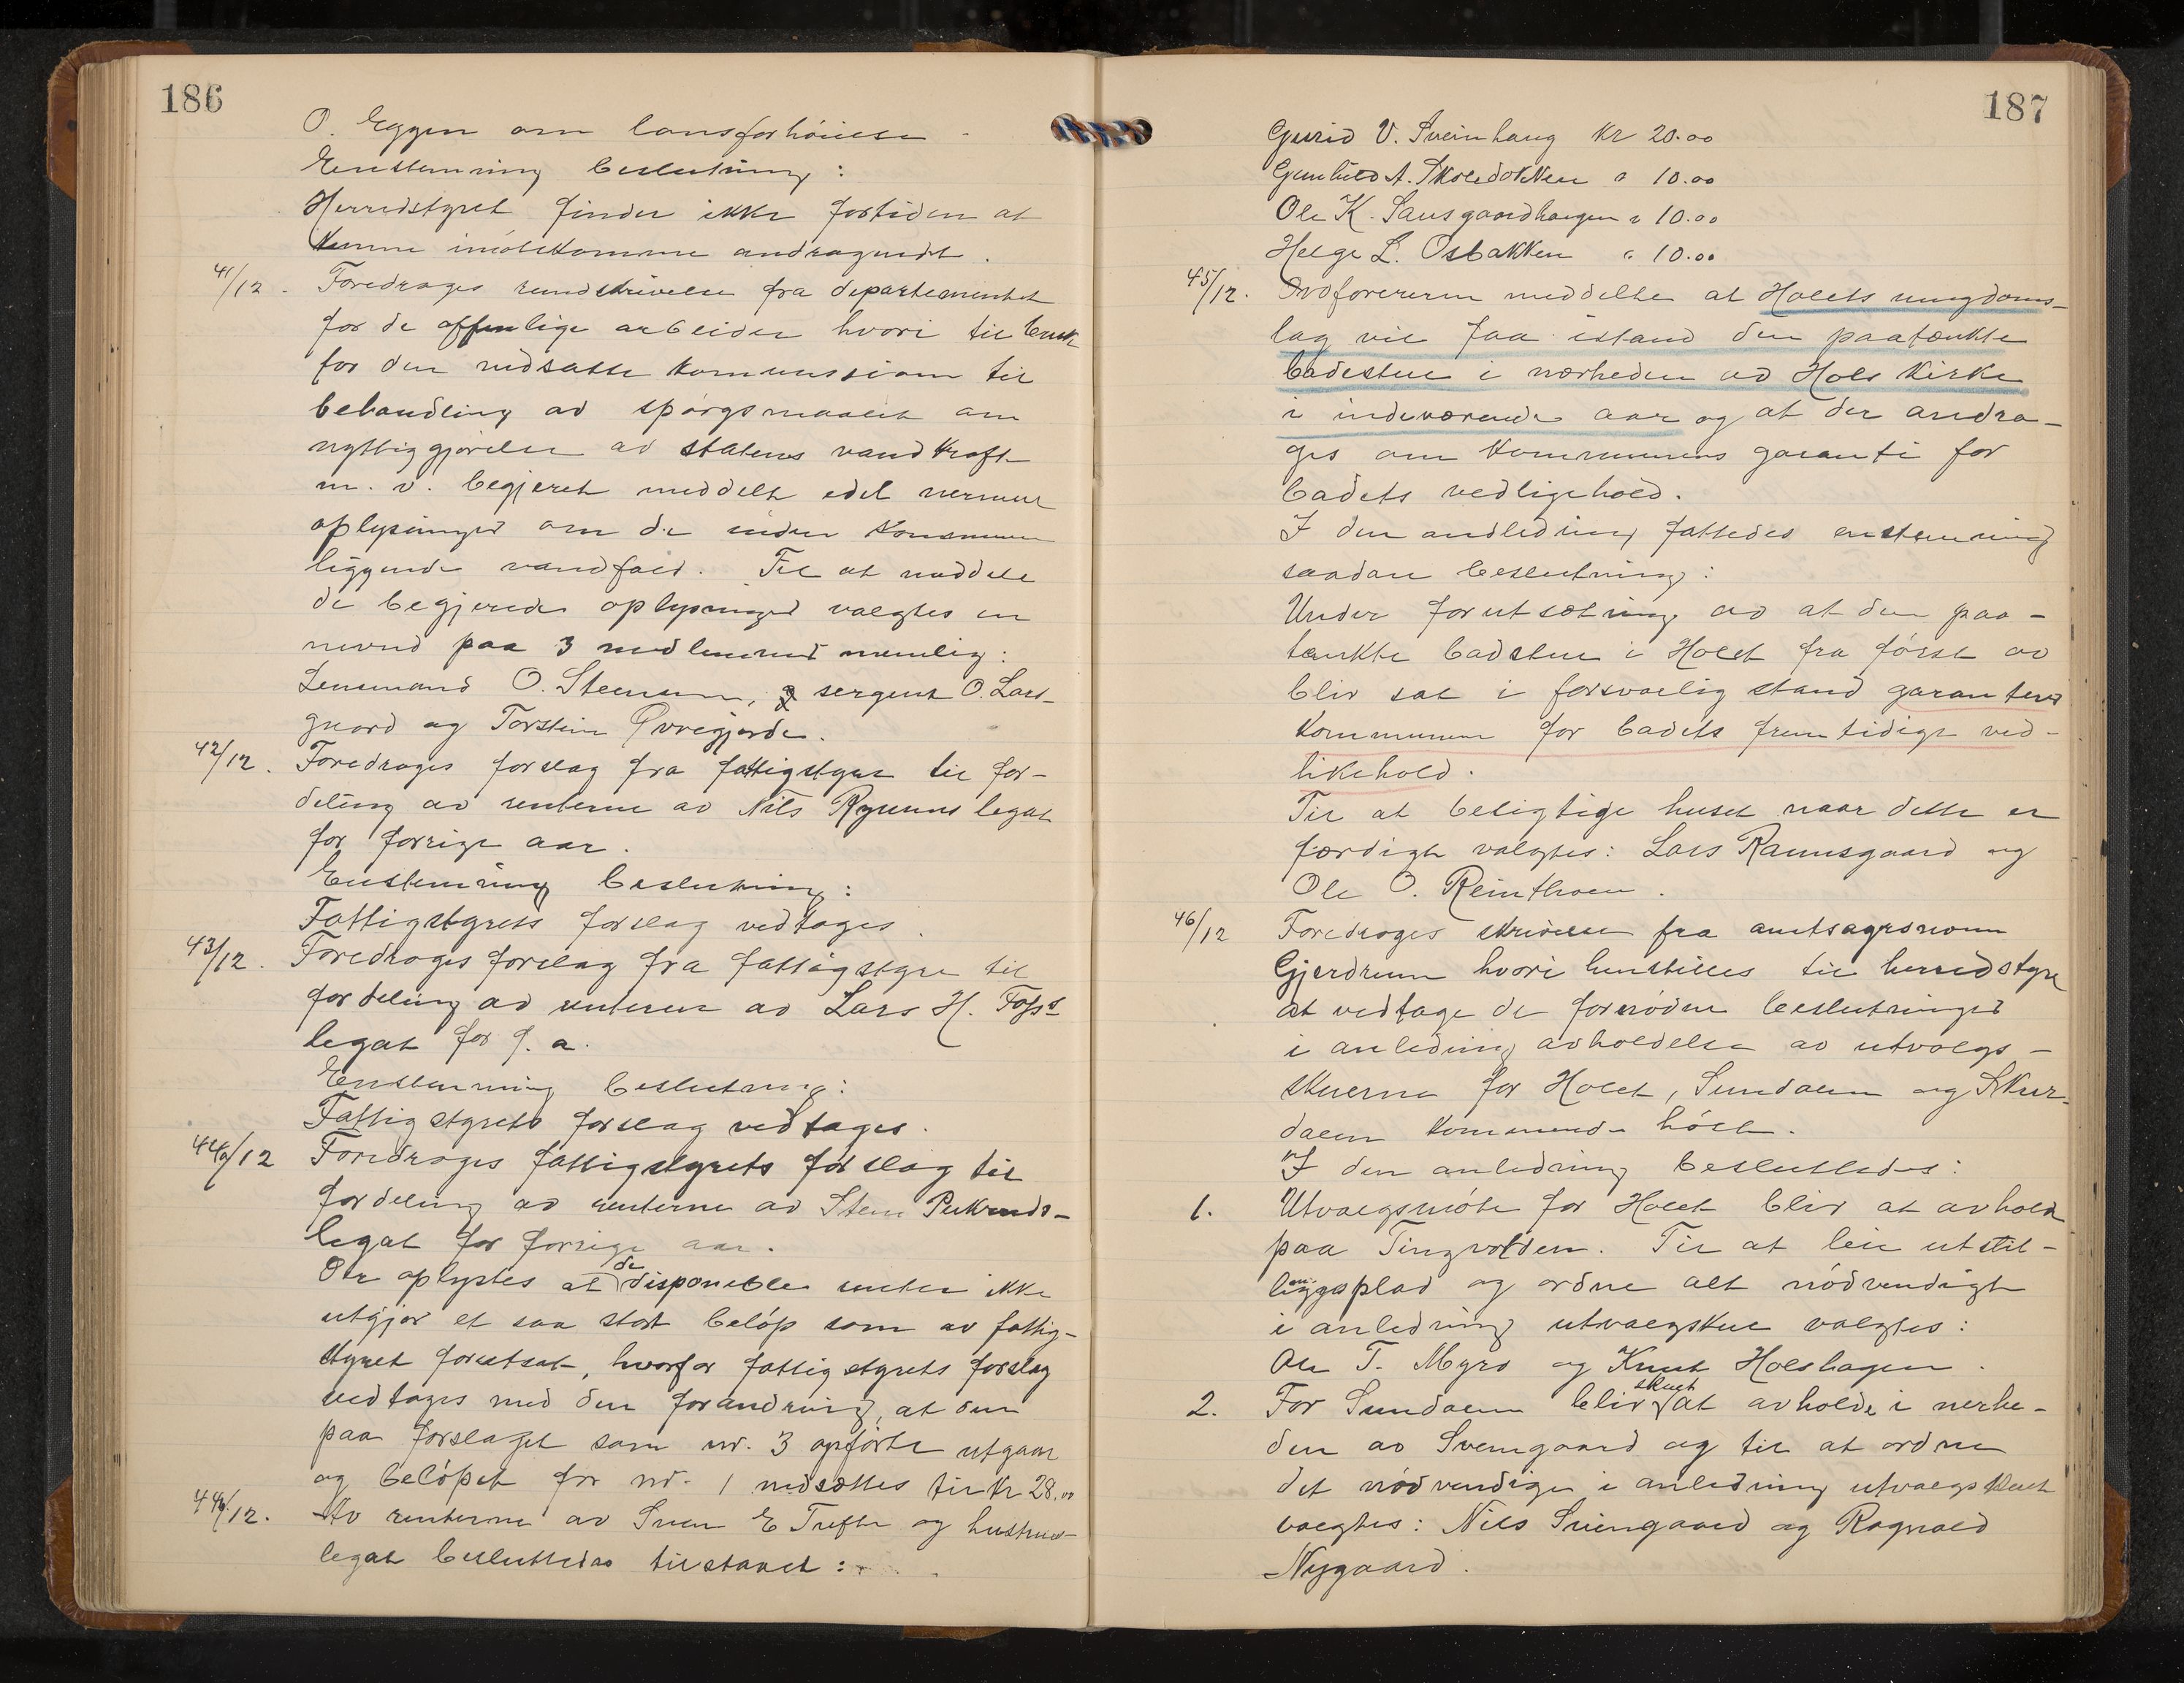 186
O. Eggen om lønsforhöielse -
Enstemmig beslutning:
Herredstyret finder ikke fortiden at
kunne imötekomme andragendet.
41/12. Foredrages rundskrivelse fra departementet
for de offenlige arbeider hvori til bruk
for den nedsatte kommission til
behandling av spörgsmaalet om
nyttiggjörelse av statens vandkraft
m. v. begjeret meddelt edel nermere
oplysninger om de inden kommunen
liggende vandfald. Til at meddele
de begjerede oplysninger valgtes en
nevnd paa 3 medlemmer nemlig:
Lensmand O. Stensen, sergent O. Lars-
gaard og Torstein Övregjerde.
42/12. Foredrages forslag fra fattigstyret til for-
deling av renterne av Nils Rynenns legat
for forrige aar.
Enstemmig beslutning:
Fattigstyrets forslag vedtages.
43/12. Foredrages forslag fra fattigstyre til
fordeling av renterne av Lars H. Foss
legat for f. a.
Enstemmig beslutning:
Fattigstyrets forslag vedtages.
44a/12 Foredrages fattigstyrets forslag til
fordeling av renterne av Sten
legat for forrige aar.
Der oplystes at de disponible renter ikke
utgjör et saa stort belöp som av fattig-
styret forutsat, hvorfor fattigstyrets forslag
vedtages med den forandring, at den
paa forslaget som nr. 3 opförte utgaar
og belöpet for nr. 1 nedsættes til kr 28.00
44b/12. Av renterne av Sven E Trefte og hustrues
legat besluttedes tilstaaet:
187
Gurid V. Sveinhaug Kr 20.00
Gunhild A. Skoledokken " 10.00
Ole K. Sausgaardhaugen " 10.00
Helge L. Osbakken " 10.00
45/12. Ordföreren meddelte at Holets ungdoms-
lag vil faa istand den paatænkte
badestue i nærheden av Hols kirke
i indeværende aar og at der andra-
ges om kommunens garanti for
badets vedligehold.
I den andledning fattedes enstemmig
saadan beslutning:
Under forutsætning av at den paa-
tænkte badstue i Holet fra först av
blir sat i forsvarlig stand garanterer
kommunen for badets fremtidige ved-
likehold.
Til at besigtige huset naar dette er
færdigt valgtes: Lars Raunsgaard og
Ole O. Reinthoen.
46/12 Foredrages skrivelse fra amtsagronom
Gjerdrum hvori henstilles til herredstyre
at vedtage de fornödne beslutninger
i anledning avholdelse av utvalgs-
skuerne for Holet, Sundalen og Skur-
dalen kommende höst.
I den anledning besluttedes:
1. Utvalgsmöte for Holet blir at avhold
paa Tingvolden. Til at leie utstil-
lingsplads og ordne alt nödvendigt
i anledning utvalgskue valgtes:
Ole T. Myro og Knut Holshagen.
2. For Sundalen blir skuet at avholde i nerhe-
den av Svengaard og til at ordne
det nödvendige i anledning utvalgskuet
valgtes: Nils Svengaard og Ragnvald
Nygaard.